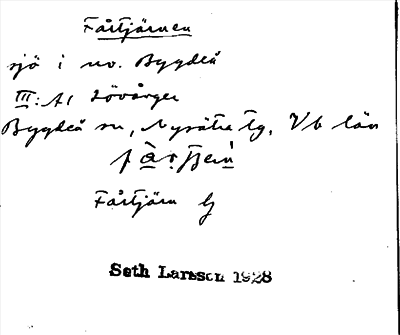 Fårtjärnen
sjö i nv. Bygdeå
III: A1 Lövånger
Bygdeå sn, Nysätra tg, Vb län
Fårtjärn
Seth Larsson 1928